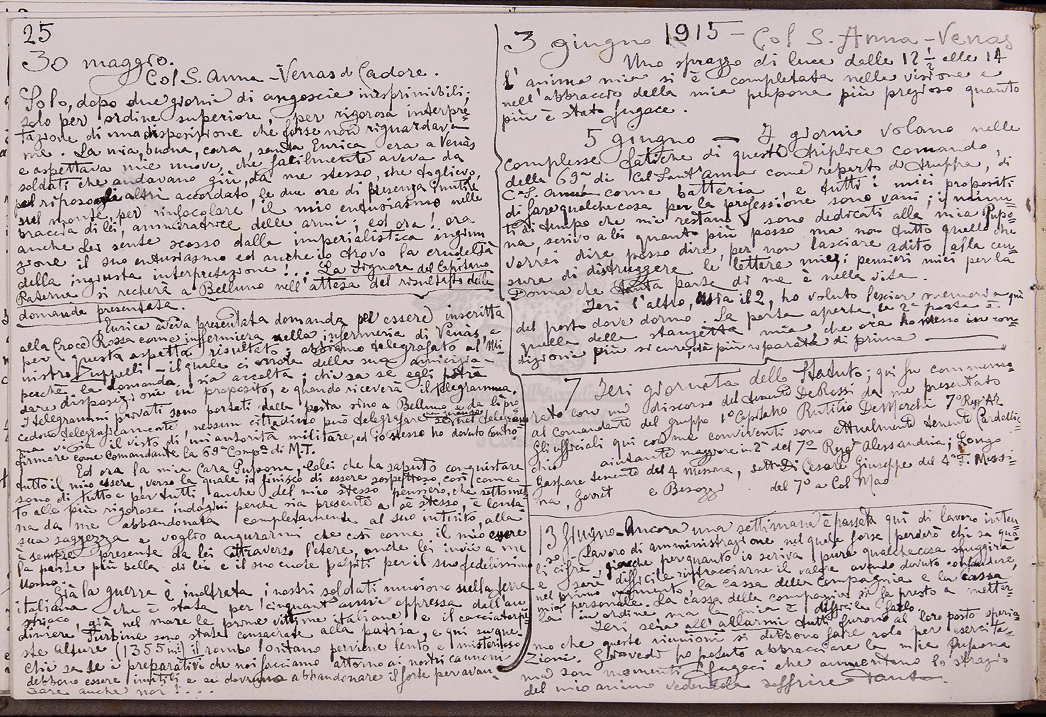 25
30 maggio.
Col S. Anna - Venas di Cadore.
Solo, dopo due giorni di angoscie inesprimibili;
solo per l'ordine superiore, per rigorosa interpre
tazione di una disposizione che forse non riguardava
me. La mia, buona, cara, santa Enrica era a Venas
e aspettava mie nuove, che facilmente aveva da
soldati che andavano giù, da me stesso, che toglievo,
al riposo altri accordato, le due ore di presenza inutile
sul monte, per rinfocolare il mio entusiasmo nelle
braccia di lei, ammiratrice delle armi, ed ora! ora
anche lei sente scosso dalla imperialistica ingiun
zione il suo entusiasmo ed anche io trovo la crudeltà
della ingiusta interpretazione!... La Signora del Capitano
Paterna si recherà a Belluno nell'attesa del risultato della
domanda presentata.
Enrica aveva presentata domanda per essere inscritta
alla Croce Rossa come infermiera nella infermeria di Venas e
per questa aspetta risultato; abbiamo telegrafato al Mi
nistro Zuppelli - il quale ci onora della sua amicizia
pechè la domanda sia accolta; chi sa se egli potrà
dare disposizione in proposito, e quando riceverà il telegramma.
I telegrammi privati sono portati dalla posta sino a Belluno e da lì pro
cedono telegraficamente nessun cittadino può telegrafare
il visto di un'autorità militare, ed io stesso ho dovuto contro
firmare come Comandante la 69a Compa di M.T.
Ed ora la mia Cara Pupona, colei che ha saputo conquistare
tutto il mio essere, verso la quale io finisco di essere sospettoso così come
sono di tutto e per tutti, anche del mio stesso pensiero, che sottomet
to alle più rigorose indagini perche sia presente a se stesso, è lonta
na da me abbandonata completamente al suo intuito, alla
sua saggezza e voglio augurarmi che così come il mio cuore
è sempre presente da lei attraverso l'etere, anche lei invii a me
la parte più bella di lei e il suo cuore palpiti per il suo fedelissimo
Uomo.
Già la guerra è inoltrata, i nostri soldati muoiono sulla terra
italiana che è stata per cinquant'anni oppressa dall'au
striaco, già nel mare le prime vittime italiane e il cacciatorpe
diniere Turbine sono state consacrate alla patria, e qui su que
ste alture (1355 m) il rombo lontano perviene lento e misterioso
chi sa se i preparativi che noi facciamo attorno ai nostri cannoni
debbono essere inutili e se dovremo abbandonare il forte per avan
zare anche noi!...
3 giugno 1915 - Col S. Anna - Venas
Uno sprazzo di luce dalle 12 ½ alle 14
l'anima mia si è completata nella visione e
nell'abbraccio della mia pupona più prezioso quanto
più è stato fugace.
5 giugno - I giorni volano nelle
complesse fatiche di questo triplice comando,
della 69a di Col Sant'Anna come reparto di truppa, di
Col S. Anna come batteria, e tutti i miei propositi
di fare qualche cosa per la professione sono vani; i
ti di tempo che mi restano posso sono dedicati alla mia Pupo
na, scrivo a lei quanto più posso ma non tutto quello che
vorrei dire posso dire, per non lasciare adito alla cen
sura di distruggere le lettere miei pensieri miei per la
Donna che tanta parte di me è nella vita.
Ieri l'altro, ossia il 2, ho voluto lasciar memoria qui
del posto dove dormo. La porta aperta, la 2a porta è
quella della stanzetta mia che ora ho messo in con
dizioni più sicure e più riparate di prima
7 Ieri giornata dello Statuto; qui fu commemo
rato con un discorso del tenente De Rossi da me presentato
al Comandante del gruppo 1° Capitano Rutilio De Marchi 7° Regt Art
Gli ufficiali qui con me conviventi sono attualmente tenente Cardelli
chio aiutante maggiore in 2a del 7° Regt Alessandria; Longo
Gaspare tenente del 4 Messina, sottte Di Cesare Giuseppe del 4° Messi
na, Jorit e Besozzi del 7° a Col Mao
13 Giugno - Ancora una settimana è passata qui di lavoro inten
Lavoro di amministrazione nel quale forse perderò chi sa qua
li cifre, giacche per quanto io scriva pure qualche cosa sfuggirà
e sarà difficile rintracciarne il valore avendo dovuto confondere,
nel primo momento, la cassa della compagnia e la cassa
mia personale. La cassa della compagnia si fa presto a metter
la in ordine ma la mia è difficile farlo
Ieri sera all'allarmi tutti furono al loro posto speria
mo che queste riunioni si debbono fare solo per esercita
zioni. Giovedì ho potuto abbracciare la mia Pupona
ma son momenti fugaci che aumentano lo strazio
del mio animo vedendola soffrire tanto.